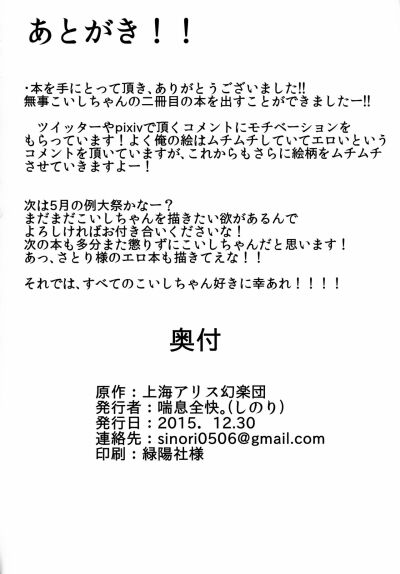 あとがき！！
・本を手にとって頂き、ありがとうございました!!
無事こいしちゃんの二冊目の本を出すことができましたー!!
ツイッターやpixivで頂くコメントにモチベーションを
もらっています！よく俺の絵はムチムチしていてエロいという
コメントを頂いていますが、これからもさらに絵柄をムチムチ
させていきますよー！
次は5月の例大祭かなー？
まだまだこいしちゃんを描きたい欲があるんで
よろしければお付き合いくださいな！
次の本も多分また懲りずにこいしちゃんだと思います！
あっ、さとり様のエロ本も描きてえな！！
それでは、すべてのこいしちゃん好きに幸あれ！！！！
奥付
原作：上海アリス幻楽団
発行者：喘息全快。(しのり)
発行日：2015．12.30
連絡先：sinori0506@gmail.com
印刷：緑陽社様